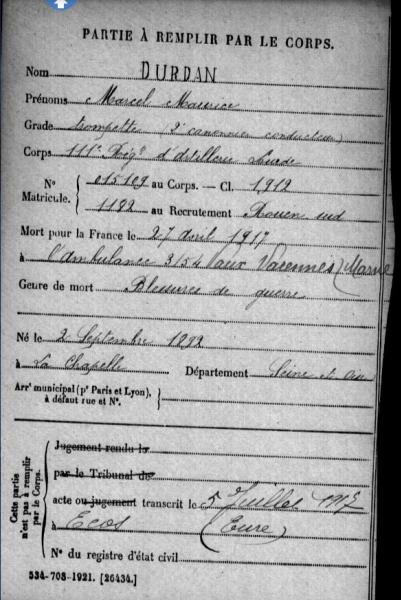 PARTIE À REMPLIR PAR LE CORPS.
Nom DURDAN
Prénoms Marcel Maurice
Grade trompette (2e canonnier conducteur)
Corps 111e Regt d'Artillerie Lourde
No Matricule. 015109 au Corps. — Cl. 1912
1182 au Recrutement Rouen sud
Mort pour la France le 27 avril 1917
à l'ambulance 3/54 Vaux Varennes (Marne
Genre de mort Blessures de guerre
Né le 2 Septembre 1892
à La Chapelle Département Seine et Oise
Arrt municipal (pr Paris et Lyon),
à défaut rue et No.
Cette partie n'est pas à remplir par le Corps.
Jugement rendu le
par le Tribunal de
acte ou jugement transcrit le 5 Juillet 1917
à Ecos (Eure)
No du registre d'état civil
534-708-1921. [26434.]